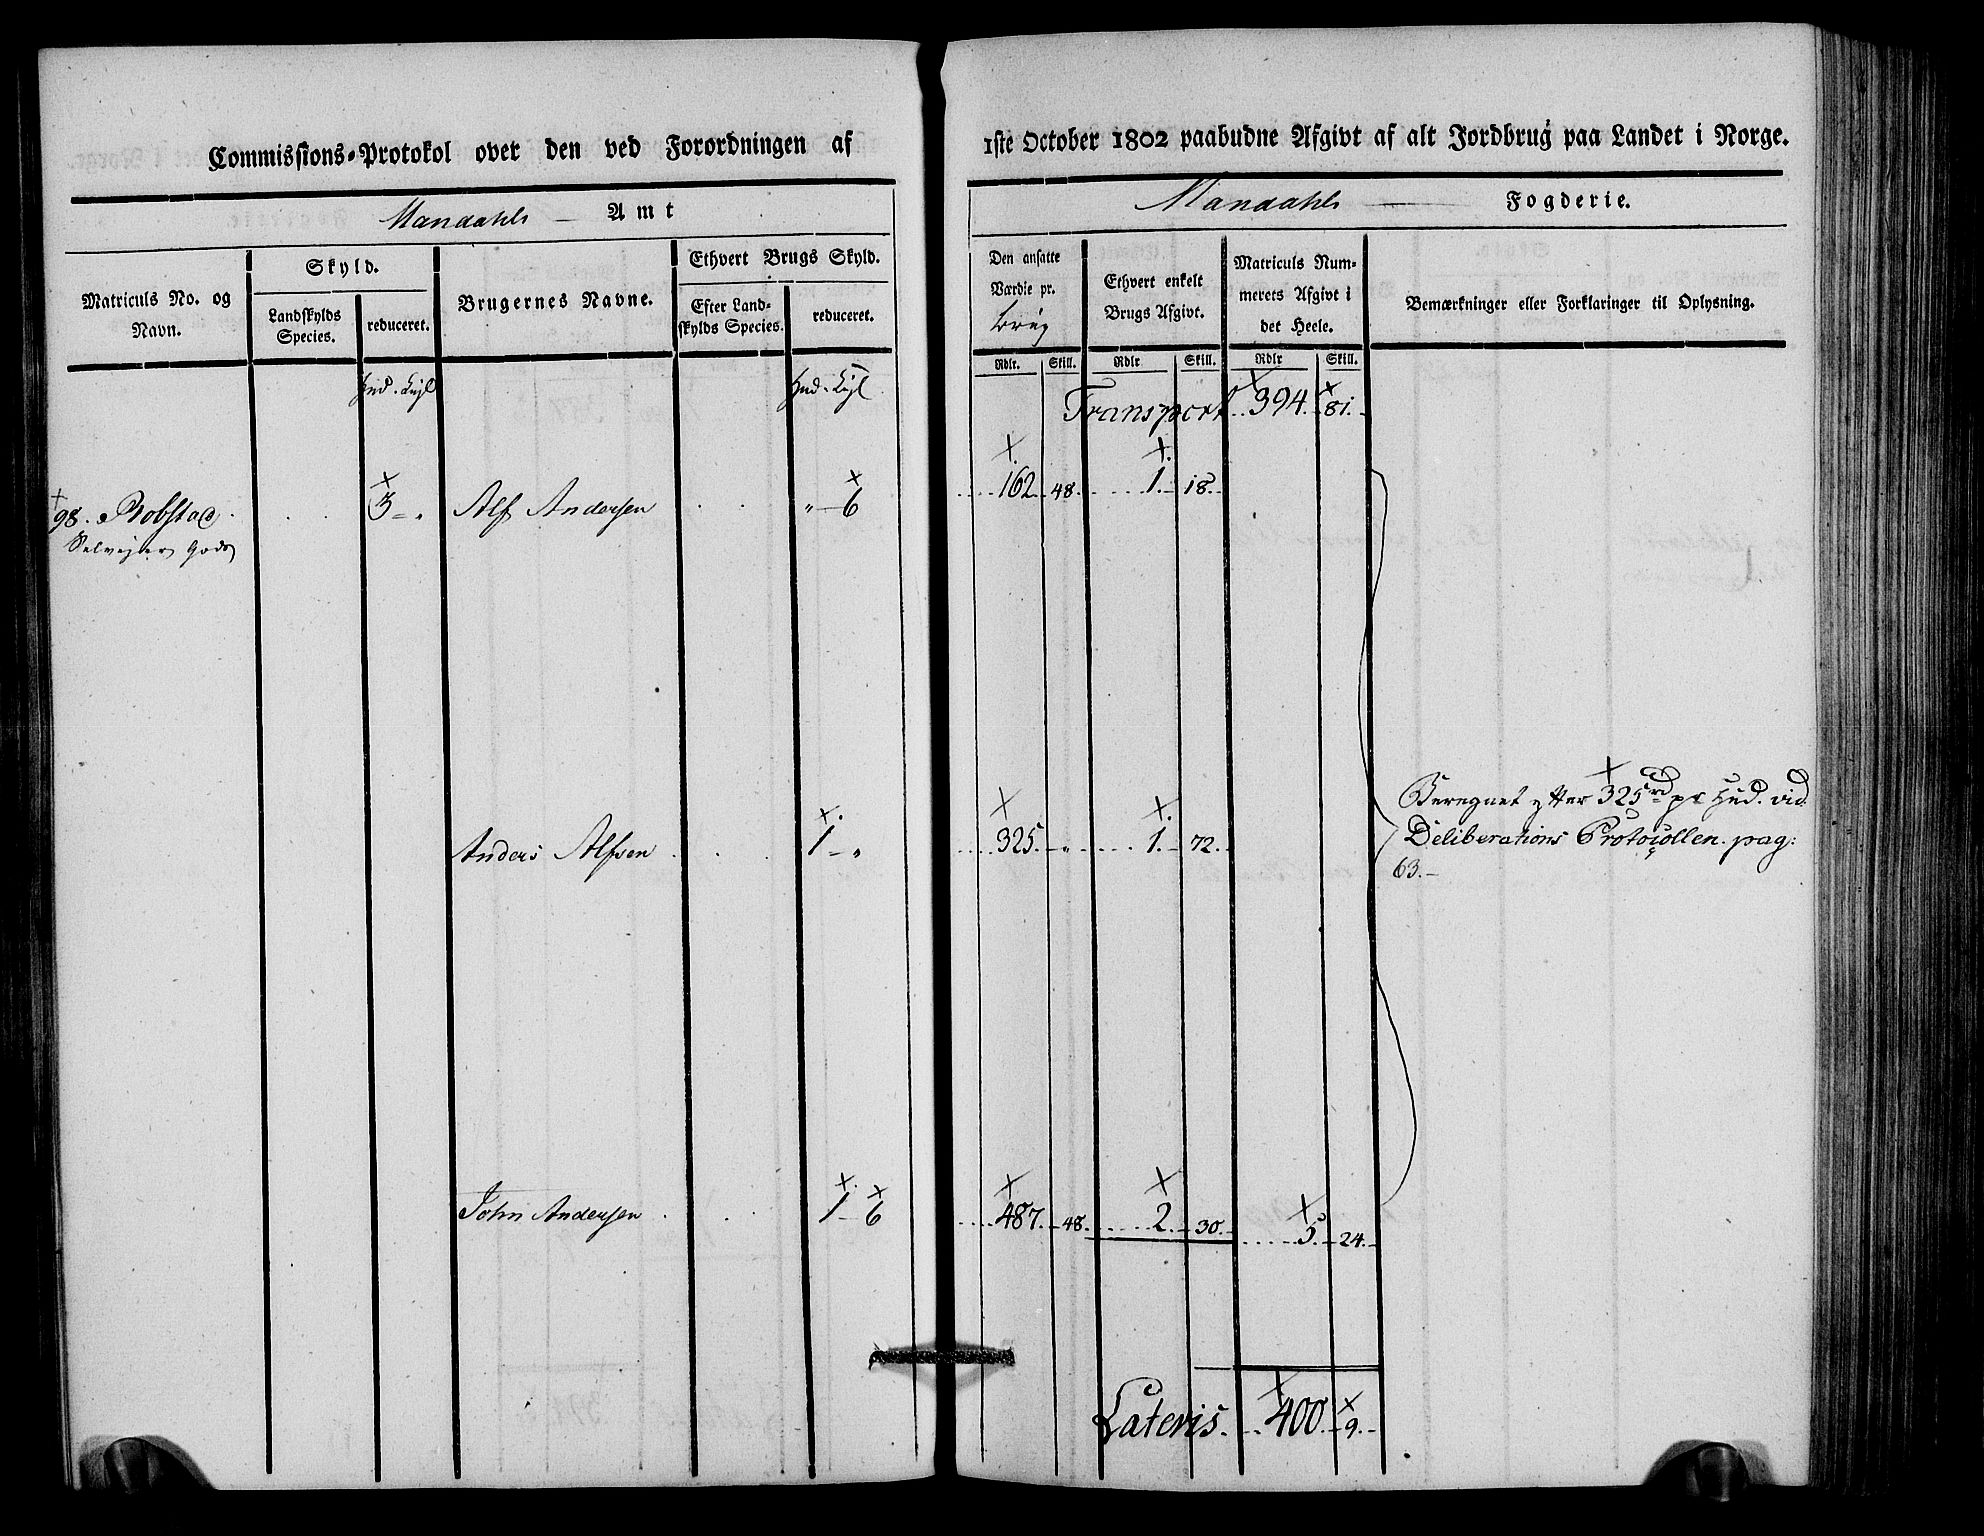 Commissions-Protokol over den ved Forordningen af
Mandahls Amt
Matriculs No. og Navn.
Skyld.
Landskylds Species.
reduceret.
Brugernes Navne.
Ethvert Brugs Skyld.
Efter Landskylds Species.
reduceret.
Hud. Kijl
Hud. Kijl
98. Robstad. 3 - " Alf Andersen " - 6
Selvejer Gods
Anders Alfsen 1 - "
John Andersen 1 - 6
1ste October 1802 paabudne Afgivt af alt Jordbrug paa Landet i Norge.
Mandahls Fogderie.
Den ansatte Værdie pr. brug
Ethvert enkelt Brugs Afgivt.
Matriculs Nummerets Afgivt i det Heele.
Bemærkninger eller Forklaringer til Oplysning.
Rdlr. Skill. Rdlr Skill. Rdlr Skill.
Transport 394. 81.
162. 48. 1. 18.
Beregnet efter 325 rd pr Hud. vid.
325. " 1. 72. Deliberations Protocollen. pag:
63.
487. 48. 2. 30. 5. 24.
Lateris. 400. 9.